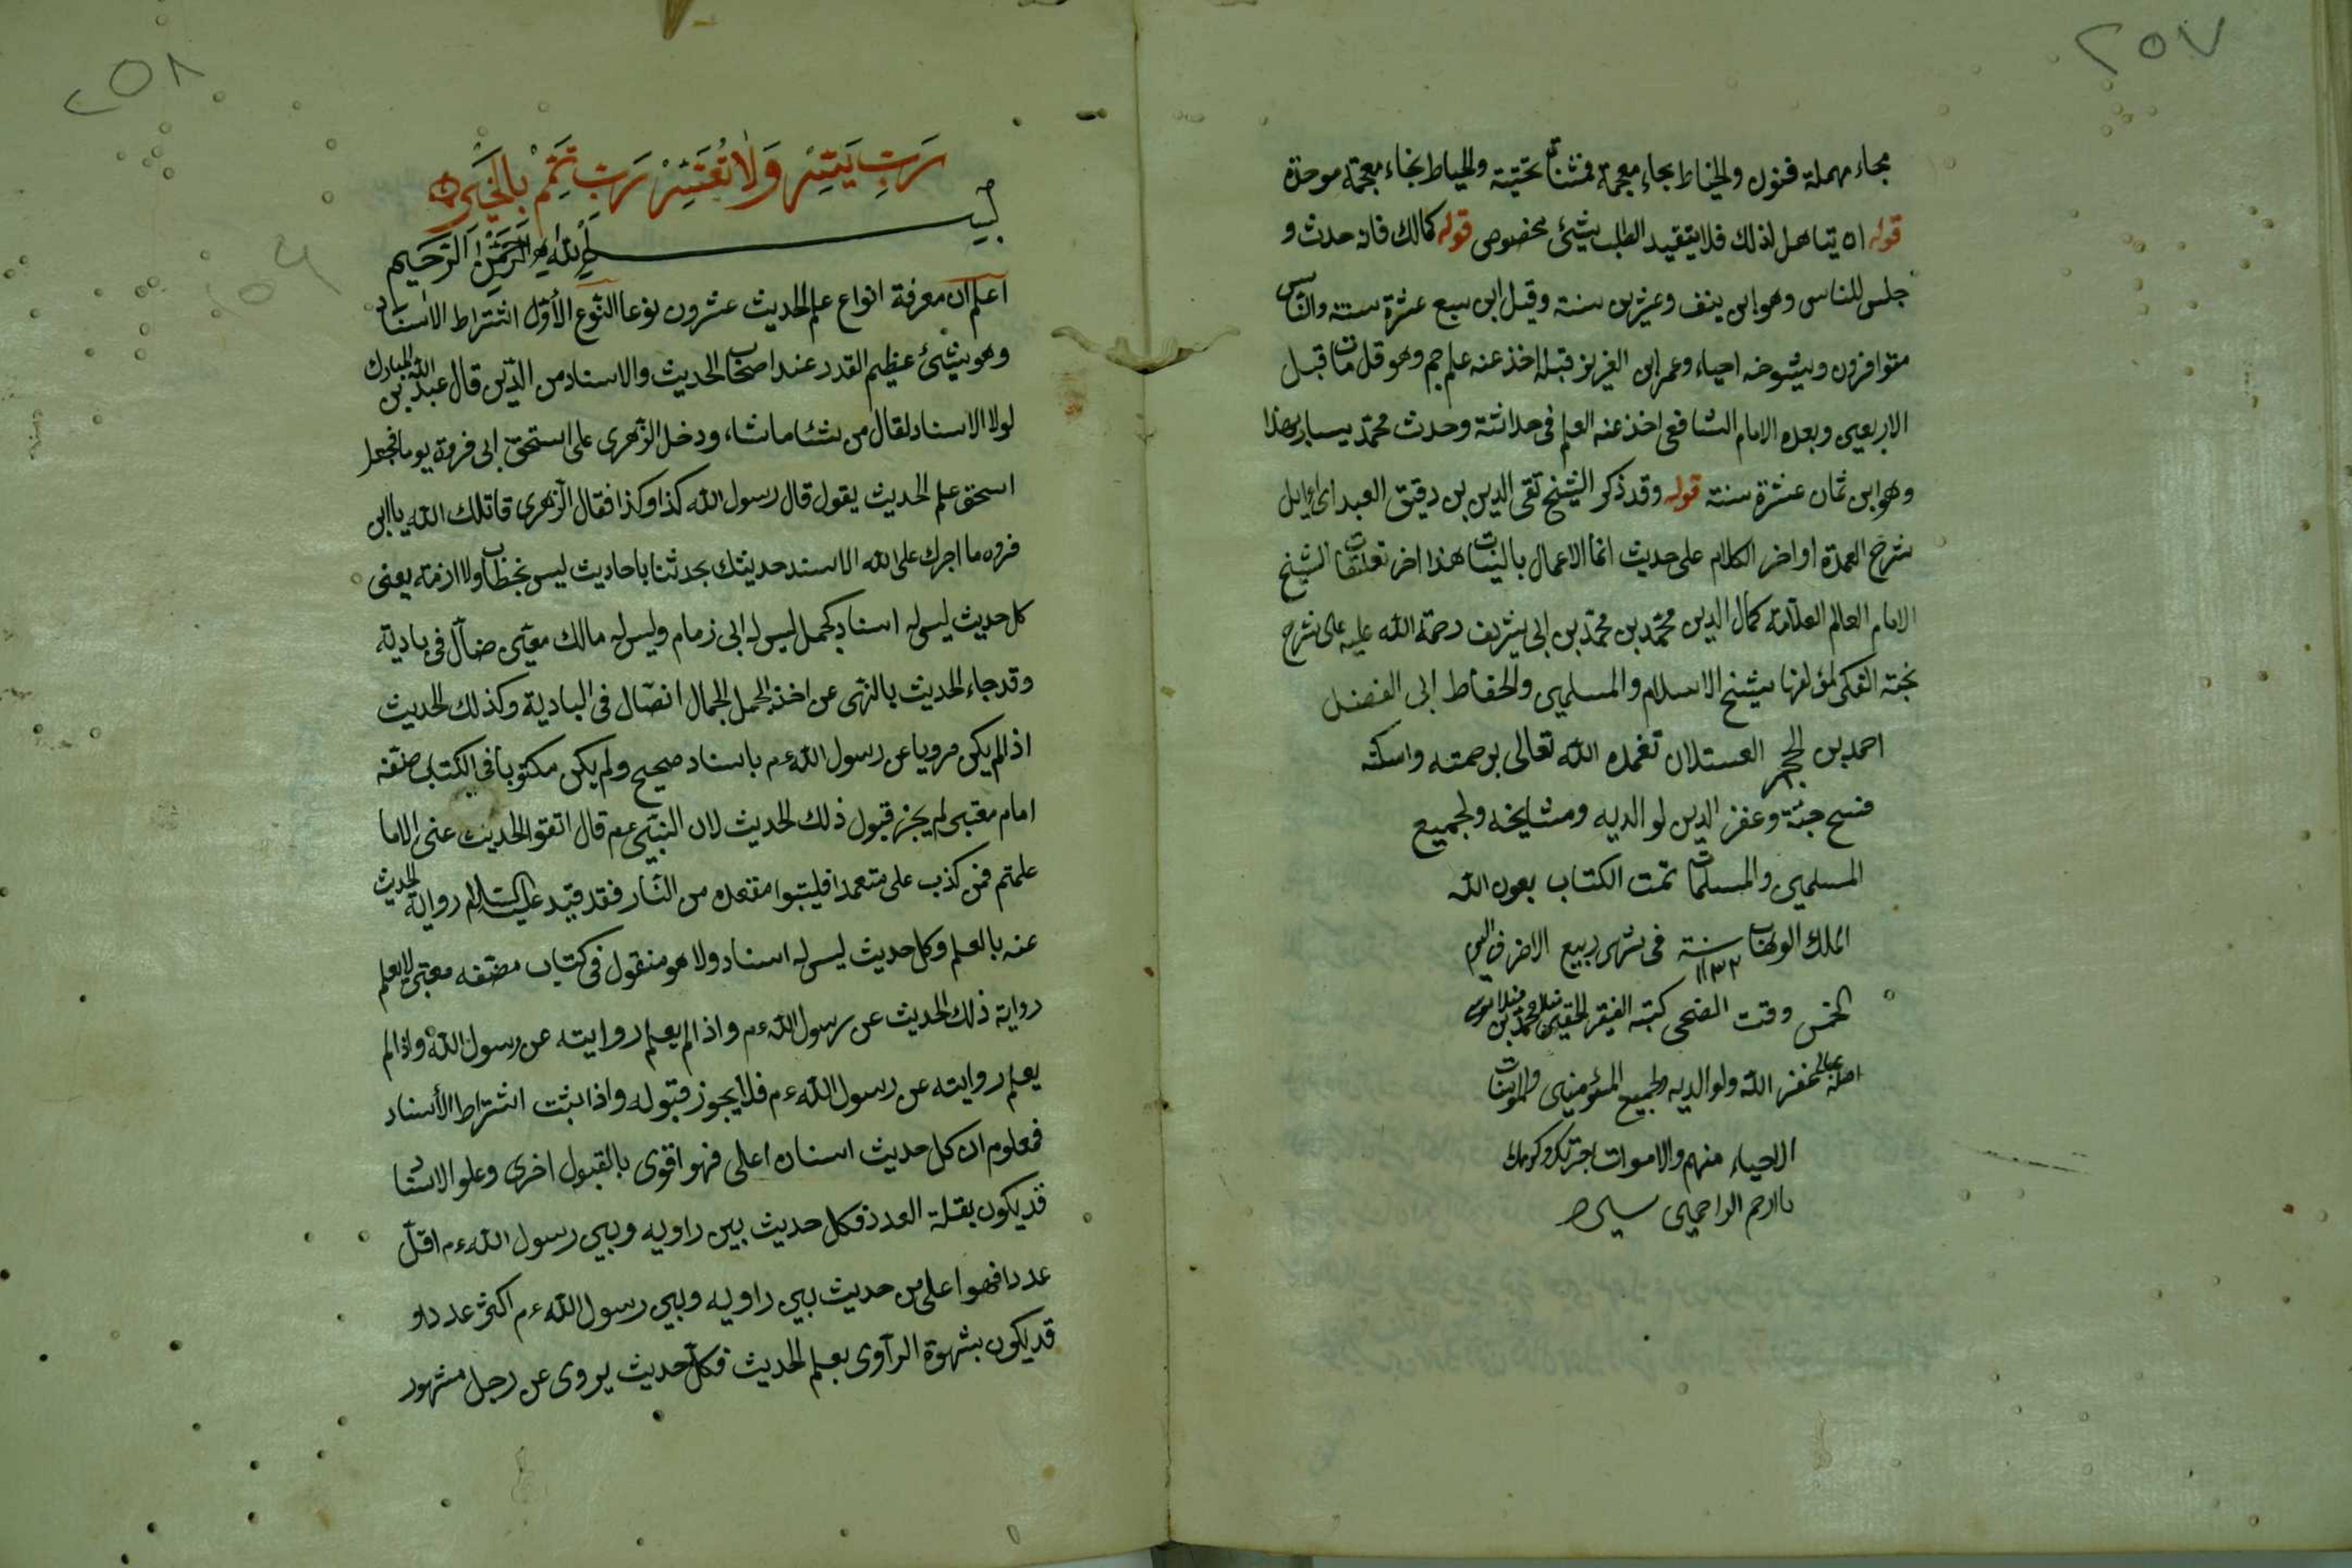 ٢٥٧
بحاء مهملة فنون والخياط بخاء معجمة فمثناة تحتية والخباط بخاء معجمة موحدة
قوله ان يتاهل لذلك فلا يتقيد الطلب بشئ مخصوص قوله كمالك فانه حدث و
جلس للناس وهو ابن ينف وعشرين سنة وقيل ابن سبع عشرة سنة والناس
متوافرون وشيوخه احياء وعمر ابن العزيز قبله اخذ عنه علم جم وهو قل مات قبل
الاربعين وبعده الامام الشافعى اخذ عنه العلم فى حداثته وحدث محمد
وهو ابن ثمان عشرة سنة قوله وقد ذكر الشيخ تقى الدين بن دقيق العبد اى اوايل
شرح العمدة اواخر الكلام على حديث انما الاعمال بالنيات هذا اخر تعلقات الشيخ
الامام العالم العلامة كمال الدين محمد بن محمد بن ابى شريف رحمة الله عليه على شرح
نخبة الفكر لمؤلفها شيخ الاسلام والمسلمين والحفاظ ابى الفضل
احمد بن الحجر العسقلان تغمده الله تعالى برحمته واسكنه
فسح جنة وغفر الدين لوالديه ومشايخه ولجميع
المسلمين والمسلمات تمت الكتاب بعون الله
الملك الوهاب سنة ١١٣٢ فى شهر ربيع الاخر فى اليوم
الخمس وقت الضحى كتبه الفقير الحقير محمد بن
غفر الله ولوالديه ولجميع المؤمنين والمؤمنات
الاحياء منهم والاموات
يا ارحم الراحمين
٢٥٨
رب يسر ولا تعسر رب تمم بالخير
بسم الله الرحمن الرحيم
اعلم ان معرفة انواع علم الحديث عشرون نوعا النوع الأول اشتراط الاسناد
وهو شئ عظيم القدر عند اصحاب الحديث والاسناد من الدين قال عبد الله بن المبارك
لولا الاسناد لقال من شئا ما شاء ودخل الزهرى على اسحق ابى فروة يوما فجعل
اسحق علم الحديث يقول قال رسول الله كذا وكذا فقال الزهرى قاتلك الله يا ابن
فروه ما اجرك على الله الا سند حديثك بحدثنا باحاديث ليس بخطاب ولا ازمة يعنى
كل حديث ليس له اسناد كجمل ليس له ابى زمام وليس له مالك معين ضال فى بادية
وقد جاء الحديث بالنهى عن اخذ الجمل الجمال انضال فى البادية وكذلك الحديث
اذا لم يكن مرويا عن رسول الله عم باسناد صحيح ولم يكن مكتوبا فى الكتاب صنفه
امام معتبر لم يجز قبول ذلك الحديث لان النبى عم قال اتقوا الحديث عنى الا ما
علمتم فمن كذب على متعمدا فليتبوا مقعده من النار فقد قيد عليه السلام رواية الحديث
عنه بالعلم وكل حديث ليس له اسناد ولا هو منقول فى كتاب مصنفه معتبر لا يعلم
رواية ذلك الحديث عن رسول الله عم واذا لم يعلم روايته عن رسول الله واذا لم
يعلم روايته عن رسول الله عم فلا يجوز قبوله واذا ثبت اشتراط الأسناد
فعلوم ان كل حديث اسناده اعلى فهو اقوى بالقبول اخرى وعلو الاسناد
قد يكون بقلة العدد فكل حديث بين راويه وبين رسول الله عم اقل
عددا فهو اعلى من حديث بين راويه وبين رسول الله عم اكثر عددا و
قد يكون بشهوة الراوى بعلم الحديث فكل حديث يروى عن رجل مشهور